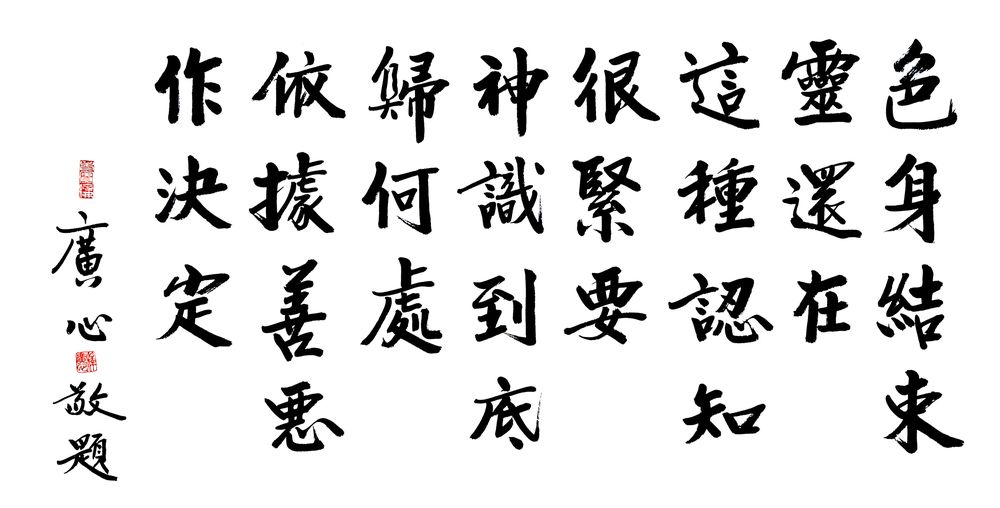 色身結束
靈還在
這種認知
很緊要
神識到底
歸何處
依據善惡
作決定
廣心敬題